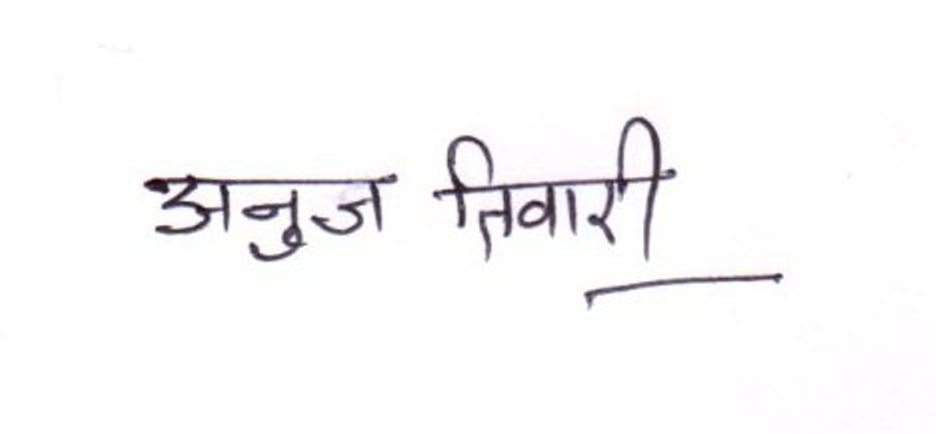 अनुज तिवारी